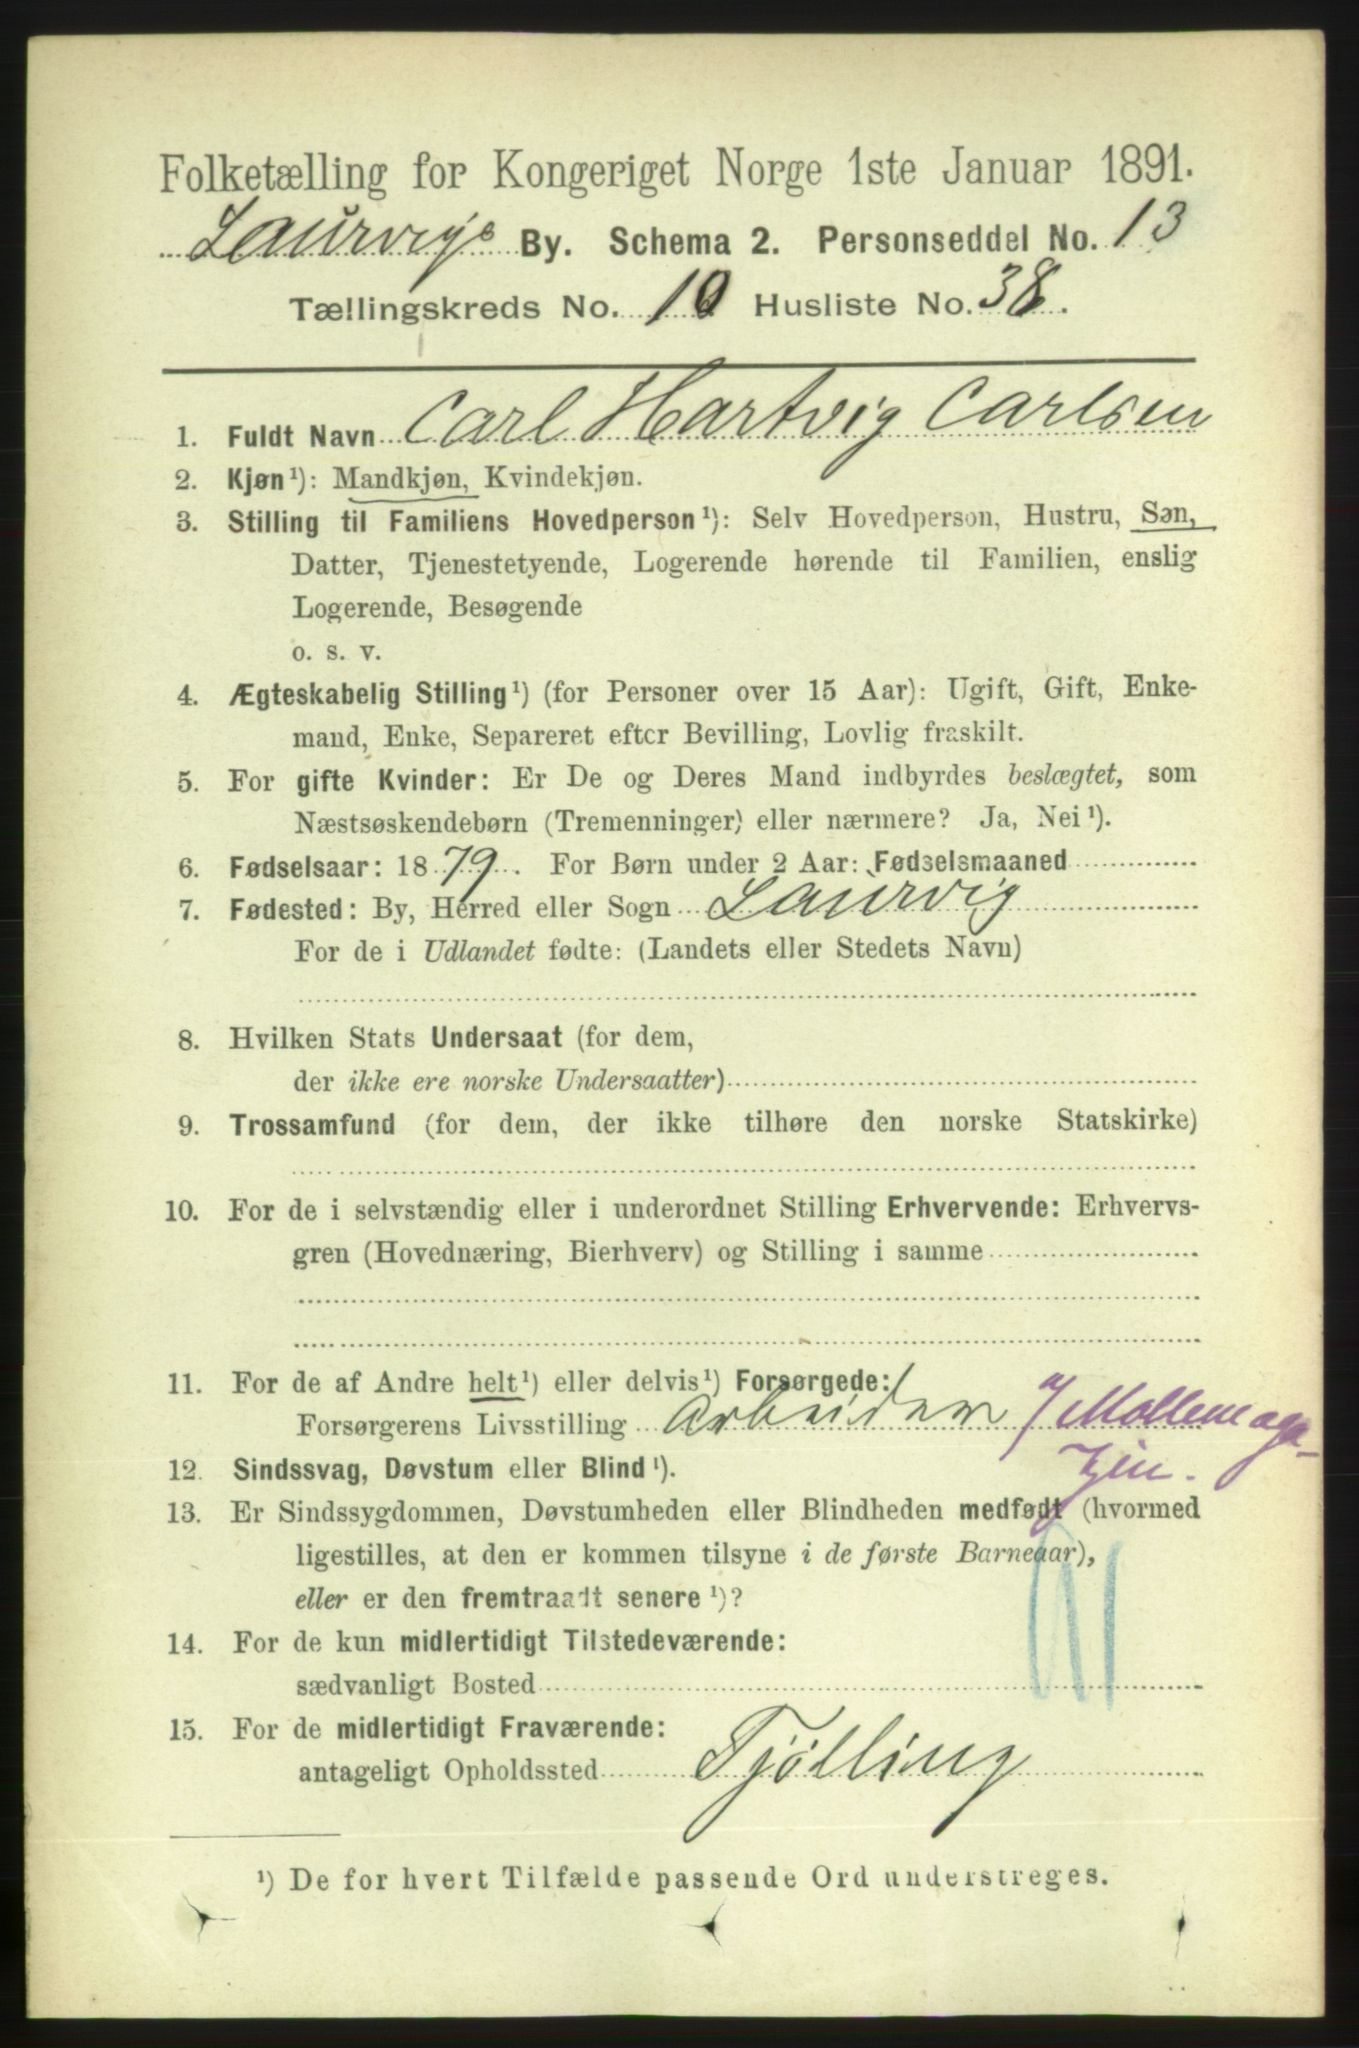 Folketælling for Kongeriget Norge 1ste Januar 1891.
Laurvigs By. Schema 2. Personseddel No. 13
Tællingskreds No. 10 Husliste No. 38.
1. Fuldt Navn Carl Hartvig Carlsen
2. Kjøn¹): Mandkjøn, Kvindekjøn.
3. Stilling til Familiens Hovedperson¹): Selv Hovedperson, Hustru, Søn,
Datter, Tjenestetyende, Logerende hørende til Familien, enslig
Logerende, Besøgende
o. s. v.
4. Ægteskabelig Stilling¹) (for Personer over 15 Aar): Ugift, Gift, Enke-
mand, Enke, Separeret efter Bevilling, Lovlig fraskilt.
5. For gifte Kvinder: Er De og Deres Mand indbyrdes beslægtet, som
Næstsøskendebørn (Tremenninger) eller nærmere? Ja, Nei¹).
6. Fødselsaar: 1879. For Børn under 2 Aar: Fødselsmaaned
7. Fødested: By, Herred eller Sogn Laurvig
For de i Udlandet fødte: (Landets eller Stedets Navn)
8. Hvilken Stats Undersaat (for dem,
der ikke ere norske Undersaatter)
9. Trossamfund (for dem, der ikke tilhøre den norske Statskirke)
10. For de i selvstændig eller i underordnet Stilling Erhvervende: Erhvervs-
gren (Hovednæring, Bierhverv) og Stilling i samme
11. For de af Andre helt¹) eller delvis¹) Forsørgede:
Forsørgerens Livsstilling Arbeider
12. Sindssvag, Døvstum eller Blind¹).
13. Er Sindssygdommen, Døvstumheden eller Blindheden medfødt (hvormed
ligestilles, at den er kommen tilsyne i de første Barneaar),
eller er den fremtraadt senere¹)?
14. For de kun midlertidigt Tilstedeværende:
sædvanligt Bosted
15. For de midlertidigt Fraværende:
antageligt Opholdssted Tjølling
¹) De for hvert Tilfælde passende Ord understreges.